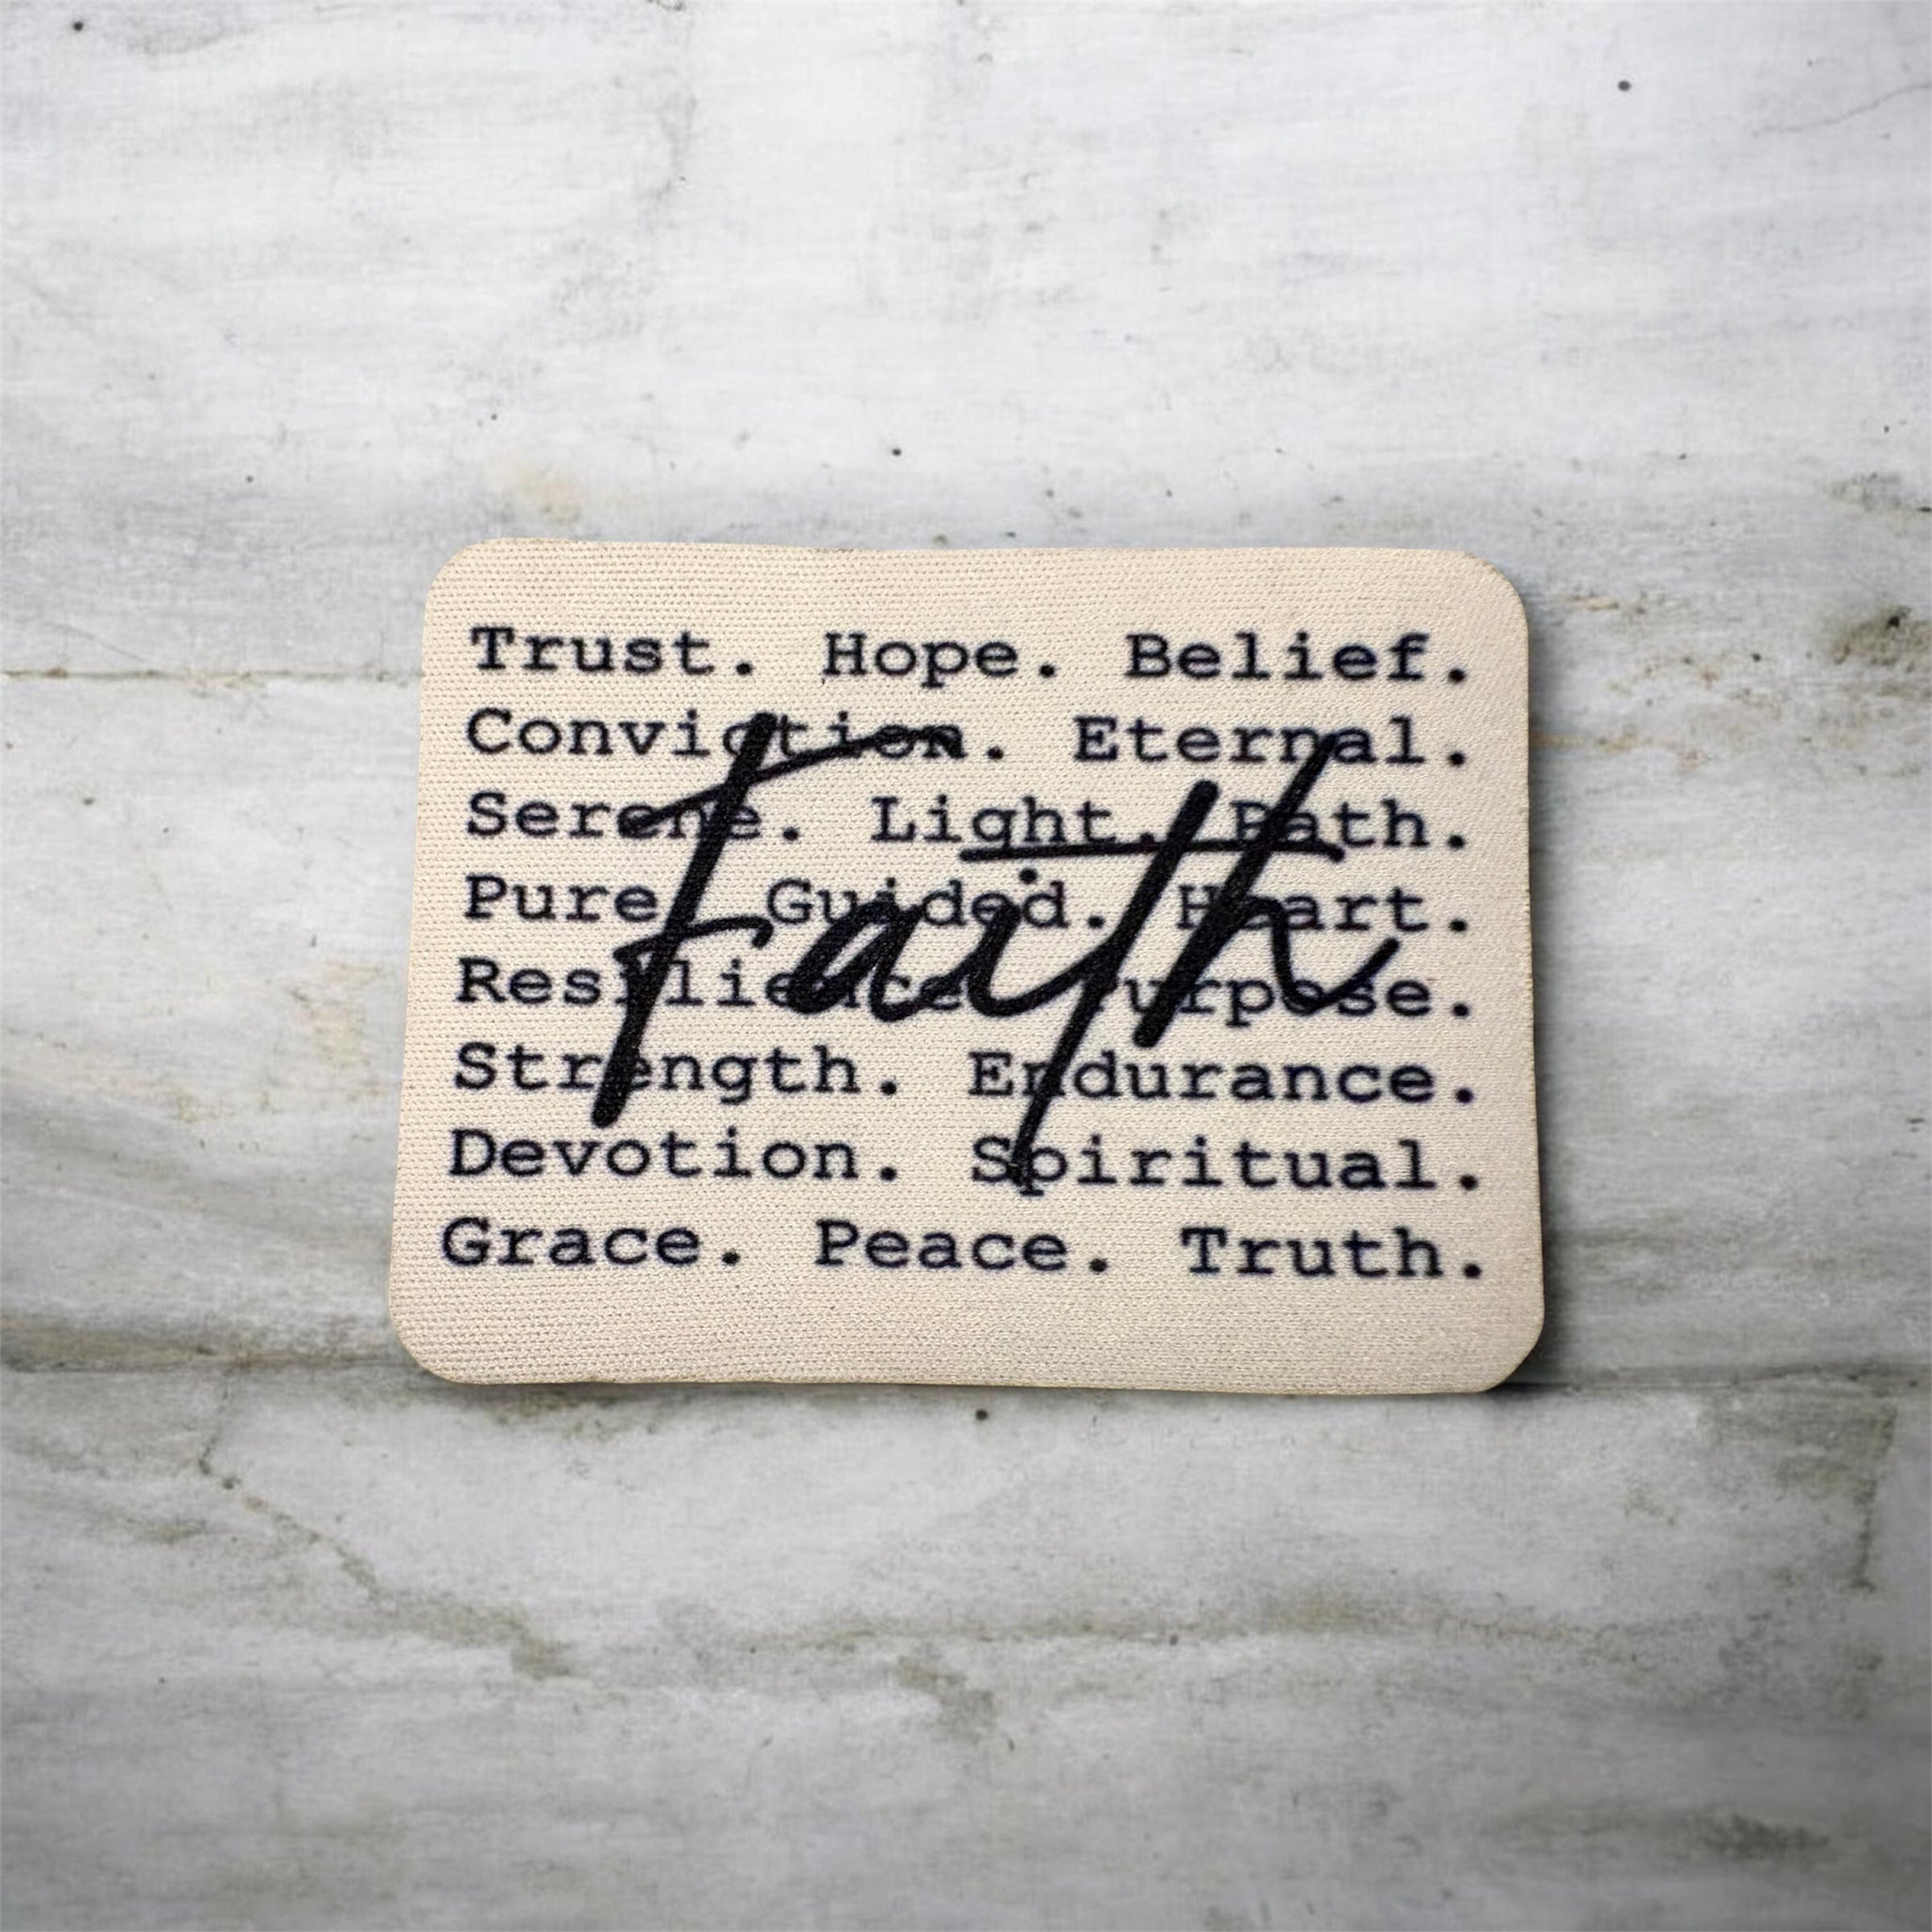 Trust. Hope. Belief.
Conviction. Eternal.
Serene. Light. Path.
Pure. Guided. Heart.
Resilience. Purpose.
Strength. Endurance.
Devotion. Spiritual.
Grace. Peace. Truth.
Faith